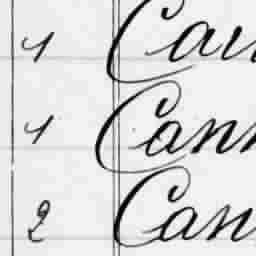 1 Cau
1 Cann
2 Can